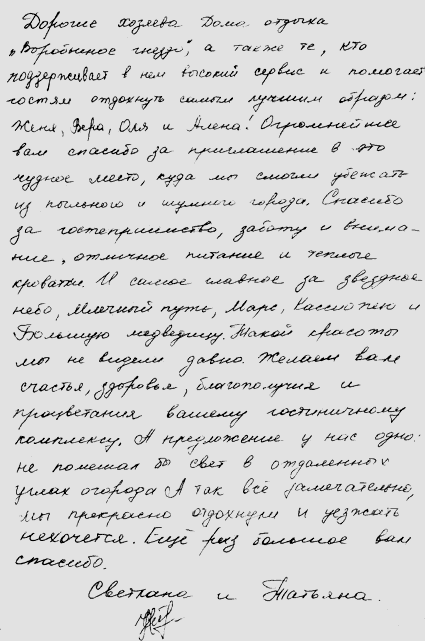 Дорогие хозяева Дома отдыха
„Воробьиное гнездо", а также те, кто
поддерживает в нем высокий сервис и помогает
гостям отдохнуть самым лучшим образом:
Женя, Вера, Оля и Алена! Огромнейшее
вам спасибо за приглашение в это
чудное место, куда мы смогли убежать
из пыльного и шумного города. Спасибо
за гостеприимство, заботу и внима-
ние, отличное питание и теплые
кроватки. И самое главное за звездное
небо, Млечный путь, Марс, Кассиопею и
Большую медведицу. Такой красоты
мы не видели давно. Желаем вам
счастья, здоровья, благополучия и
процветания вашему гостиничному
комплексу. А предложение у нас одно:
не помешал бы свет в отдаленных
углах огорода. А так всё замечательно,
мы прекрасно отдохнули и уезжать
нехочется. Ещё раз большое вам
спасибо.
Светлана и Татьяна.